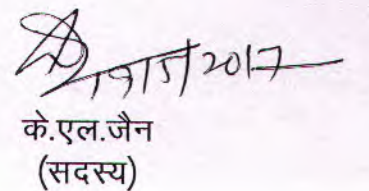 2017
के.एल.जैन
(सदस्य)